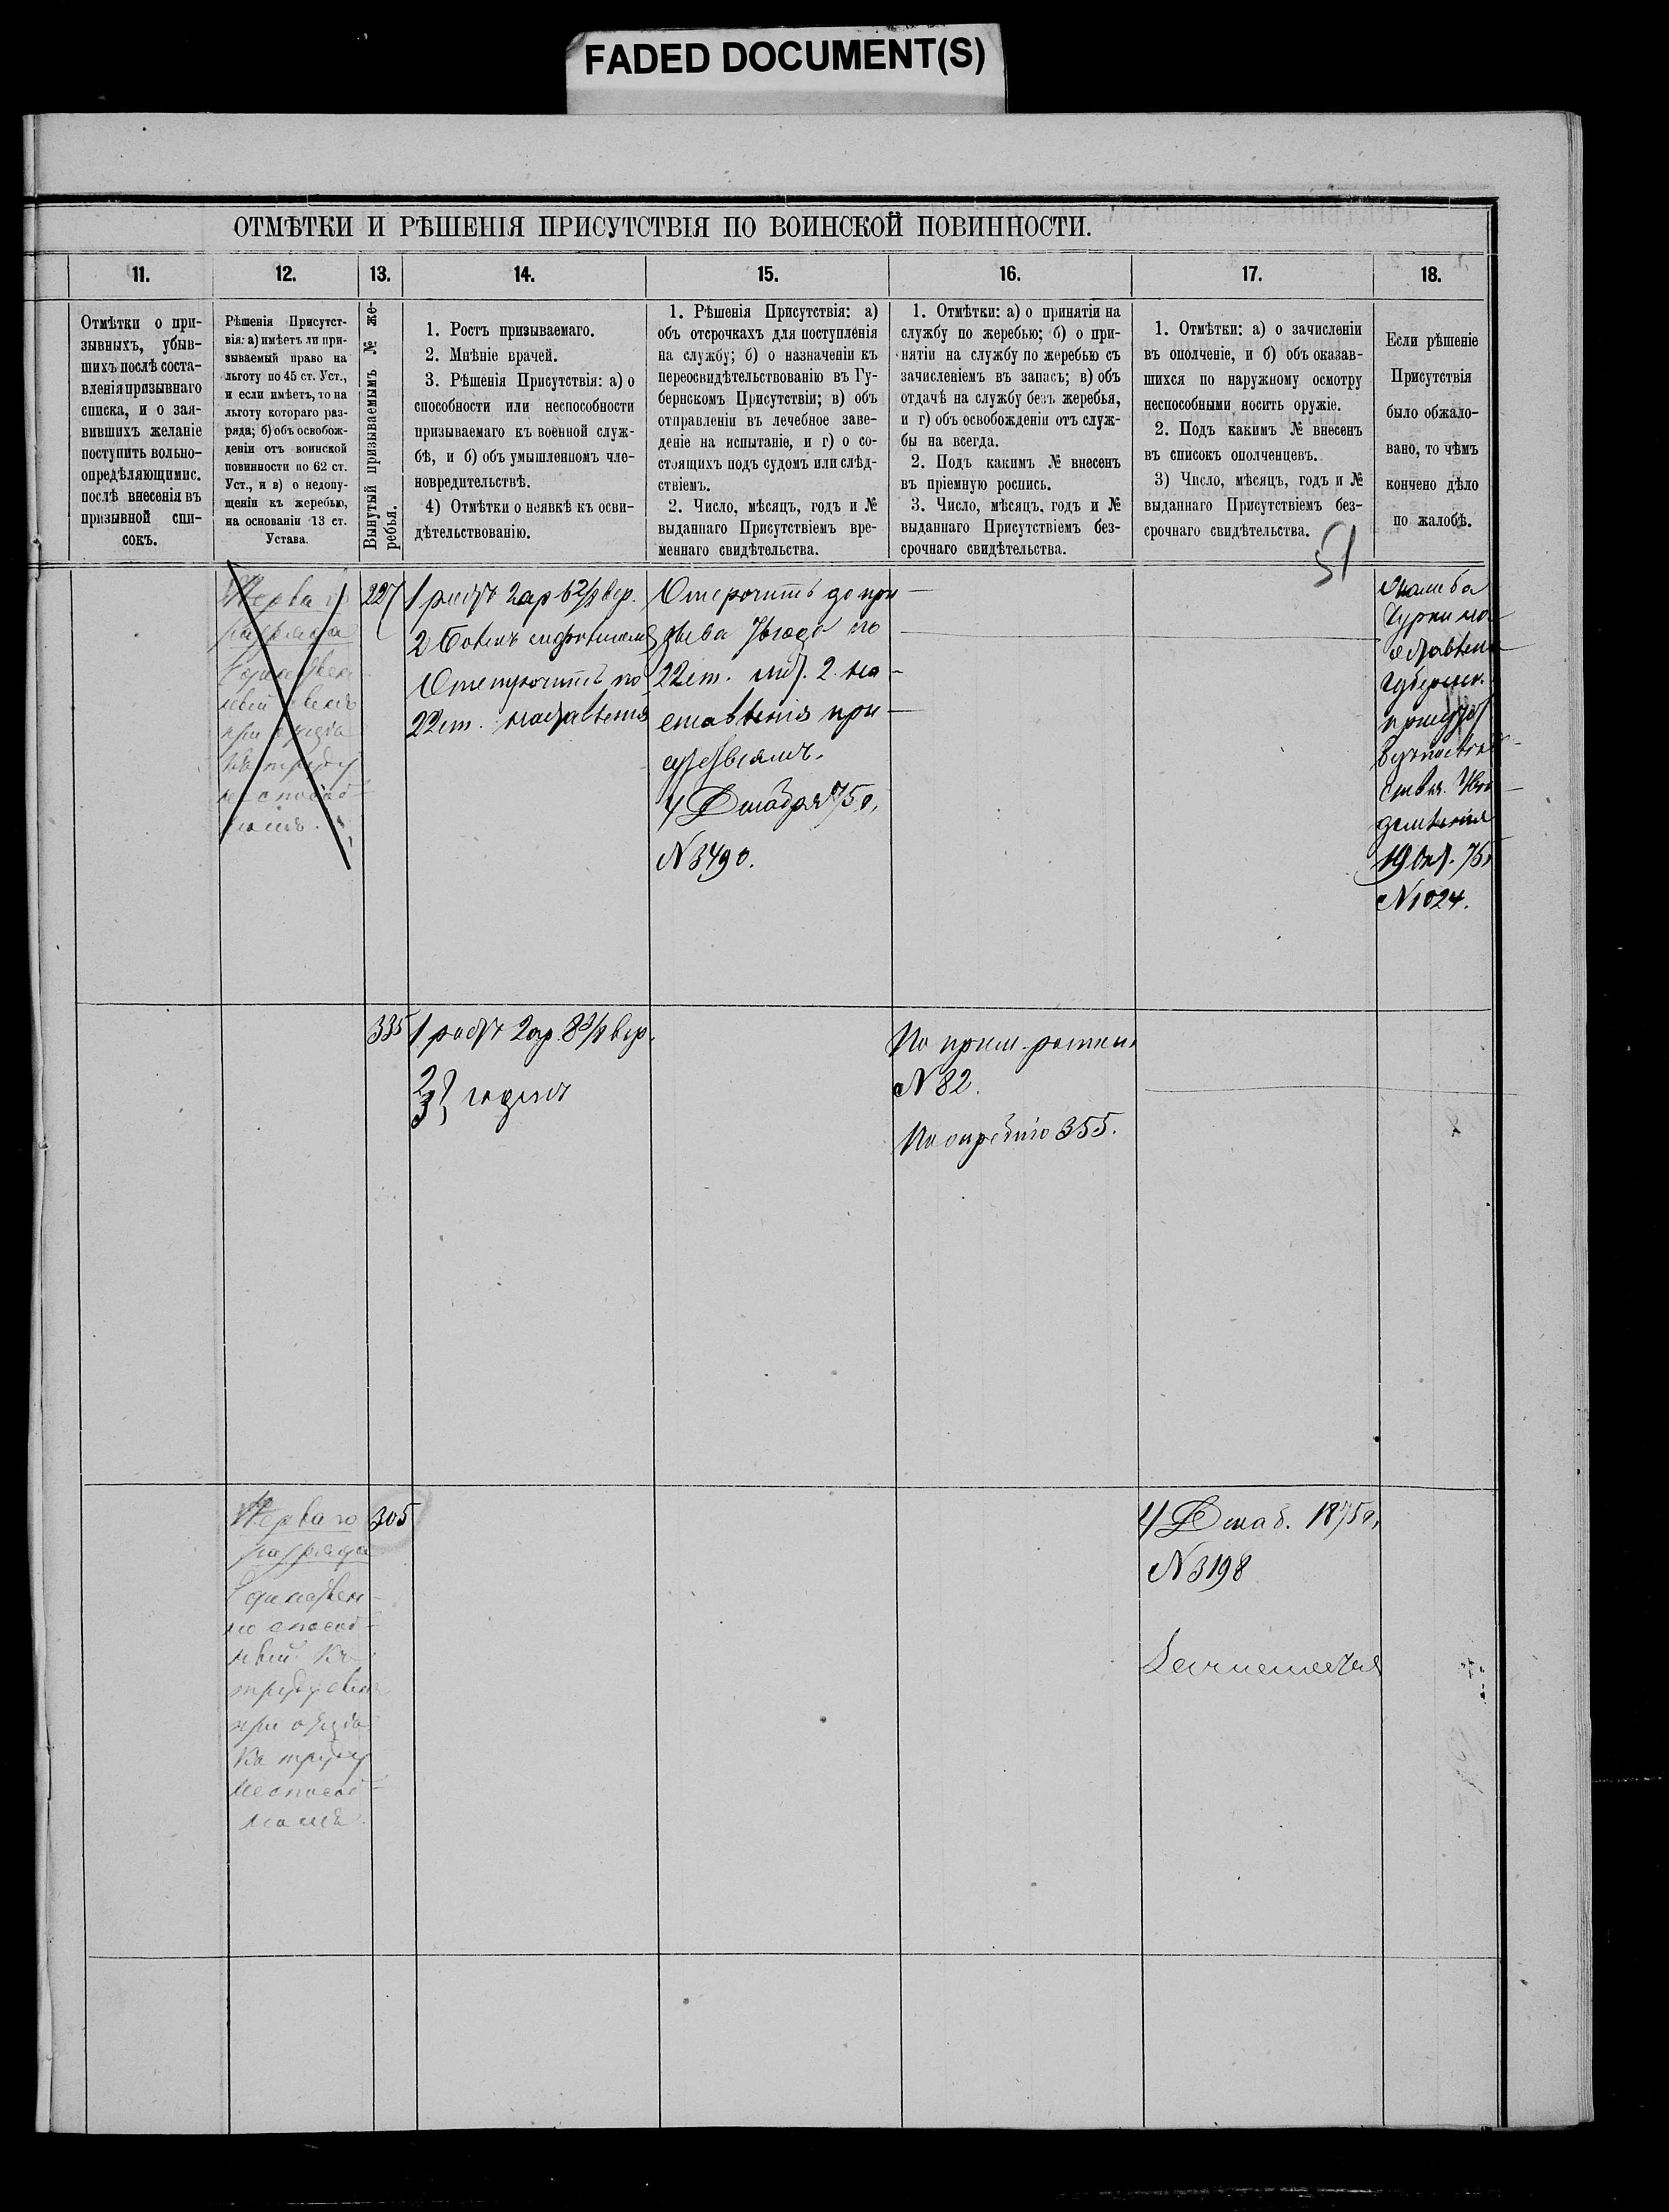 FADED DOCUMENT(S)
ОТМѢТКИ И РѢШЕНІЯ ПРИСУТСТВІЯ ПО ВОИНСКОЙ ПОВИННОСТИ.
11.
12.
13.
14.
15.
16.
17.
18.
Отмѣтки о при-
зывныхъ, убыв-
шихъ послѣ соста-
вленія призывнаго
списка, и о зая-
вившихъ желаніе
поступить вольно-
опредѣляющимис.
послѣ внесенія въ
призывной спи-
сокъ.
Рѣшенія Присутст-
вія: а) имѣетъ ли при-
зываемый право на
льготу по 45 ст. Уст.,
и если имѣетъ, то на
льготу котораго раз-
ряда; б) объ освобож-
деніи отъ воинской
повинности по 62 ст.
Уст., и в) о недопу-
щеніи къ жеребью,
на основаніи 13 ст.
Устава.
Вынутый призываемымъ № же-
ребья.
1. Ростъ призываемаго.
2. Мнѣніе врачей.
3. Рѣшенія Присутствія: а) о
способности или неспособности
призываемаго къ военной служ-
бѣ, и б) объ умышленномъ чле-
новредительствѣ.
4) Отмѣтки о неявкѣ къ осви-
дѣтельствованію.
1. Рѣшенія Присутствія: а)
объ отсрочкахъ для поступленія
на службу; б) о назначеніи къ
переосвидѣтельствованію въ Гу-
бернскомъ Присутствіи; в) объ
отправленіи въ лечебное заве-
деніе на испытаніе, и г) о со-
стоящихъ подъ судомъ или слѣд-
ствіемъ.
2. Число, мѣсяцъ, годъ и №
выданнаго Присутствіемъ вре-
меннаго свидѣтельства.
1. Отмѣтки: а) о принятіи на
службу по жеребью; б) о при-
нятіи на службу по жеребью съ
зачисленіемъ въ запасъ; в) объ
отдачѣ на службу безъ жеребья,
и г) объ освобожденіи отъ служ-
бы на всегда.
2. Подъ какимъ № внесенъ
въ пріемную роспись.
3. Число, мѣсяцъ, годъ и №
выданнаго Присутствіемъ без-
срочнаго свидѣтельства.
1. Отмѣтки: а) о зачисленіи
въ ополченіе, и б) объ оказав-
шихся по наружному осмотру
неспособными носить оружіе.
2. Подъ какимъ № внесенъ
въ списокъ ополченцевъ.
3) Число, мѣсяцъ, годъ и №
выданнаго Присутствіемъ без-
срочнаго свидѣтельства.
Если рѣшеніе
Присутствія
было обжало-
вано, то чѣмъ
кончено дѣло
по жалобѣ.
51
Перваго
разряда
при отцѣ
къ труду
неспособ-
номъ.
227
1 ростъ 2 ар 6 2/8 вер.
2 Боленъ
Отсрочить по
22 ст. наставленія
Отсрочить до при-
зыва 76 года по
22 ст. лит. 2. на-
ставленія при-
сутствіямъ.
4 Декабря 75 г.
N 3490.
Жалоба
губернск.
19 Окт. 75
N 1024.
335
1 ростъ 2 ар. 8 3/8 вер.
2
3 } годенъ
По прием. росписи
N 82.
По 355.
Перваго
разряда
Единствен-
но способ-
ный къ
труду сынъ
при отцѣ
къ труду
неспособ-
номъ.
305
4 Декаб. 1875 г.
N 3198